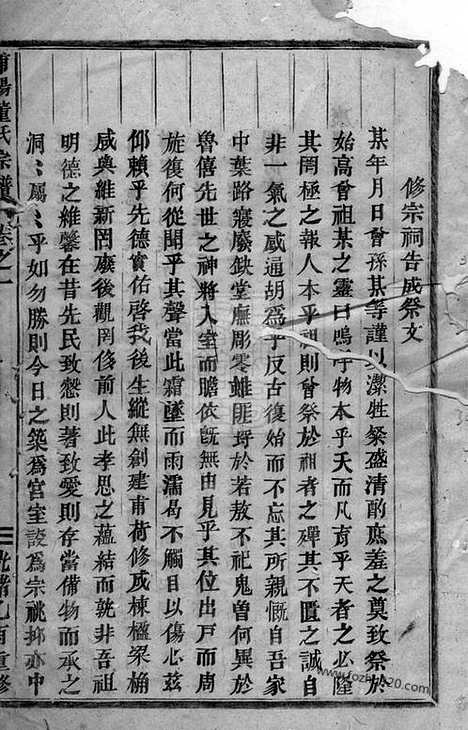 修宗祠告成祭文
某年月日曾孫某等謹以潔牲粢盛清酌庶羞之奠致祭於
始高曾祖某之靈曰嗚呼物本乎天而凡育乎天者之必隆
其罔極之報人本乎祖則曾祭於祖者之殫其不匱之誠自
非一氣之感通胡為乎反古復始而不忘其所親慨自吾家
中葉路寢廢缺堂廡彫零雖匪等於若敖不祀鬼曾何異於
魯僖先世之神將入室而瞻依旣無由見乎其位出戸而周
旋復何從聞乎其聲當此霜墜而雨濡曷不觸目以傷心茲
仰賴乎先德實佑啓我後生縱無創建甫荷修成棟楹梁桷
咸與維新罔廢後觀罔侈前人此孝思之蘊結而孰非吾祖
明德之維馨在昔先民致慤則著致愛則存當備物而承之
洞〻屬〻乎如勿勝則今日之築爲宮室設爲宗祧抑亦中
蒲陽董氏宗譜 卷之一
光緒乙酉重修
www.fozhu920.com